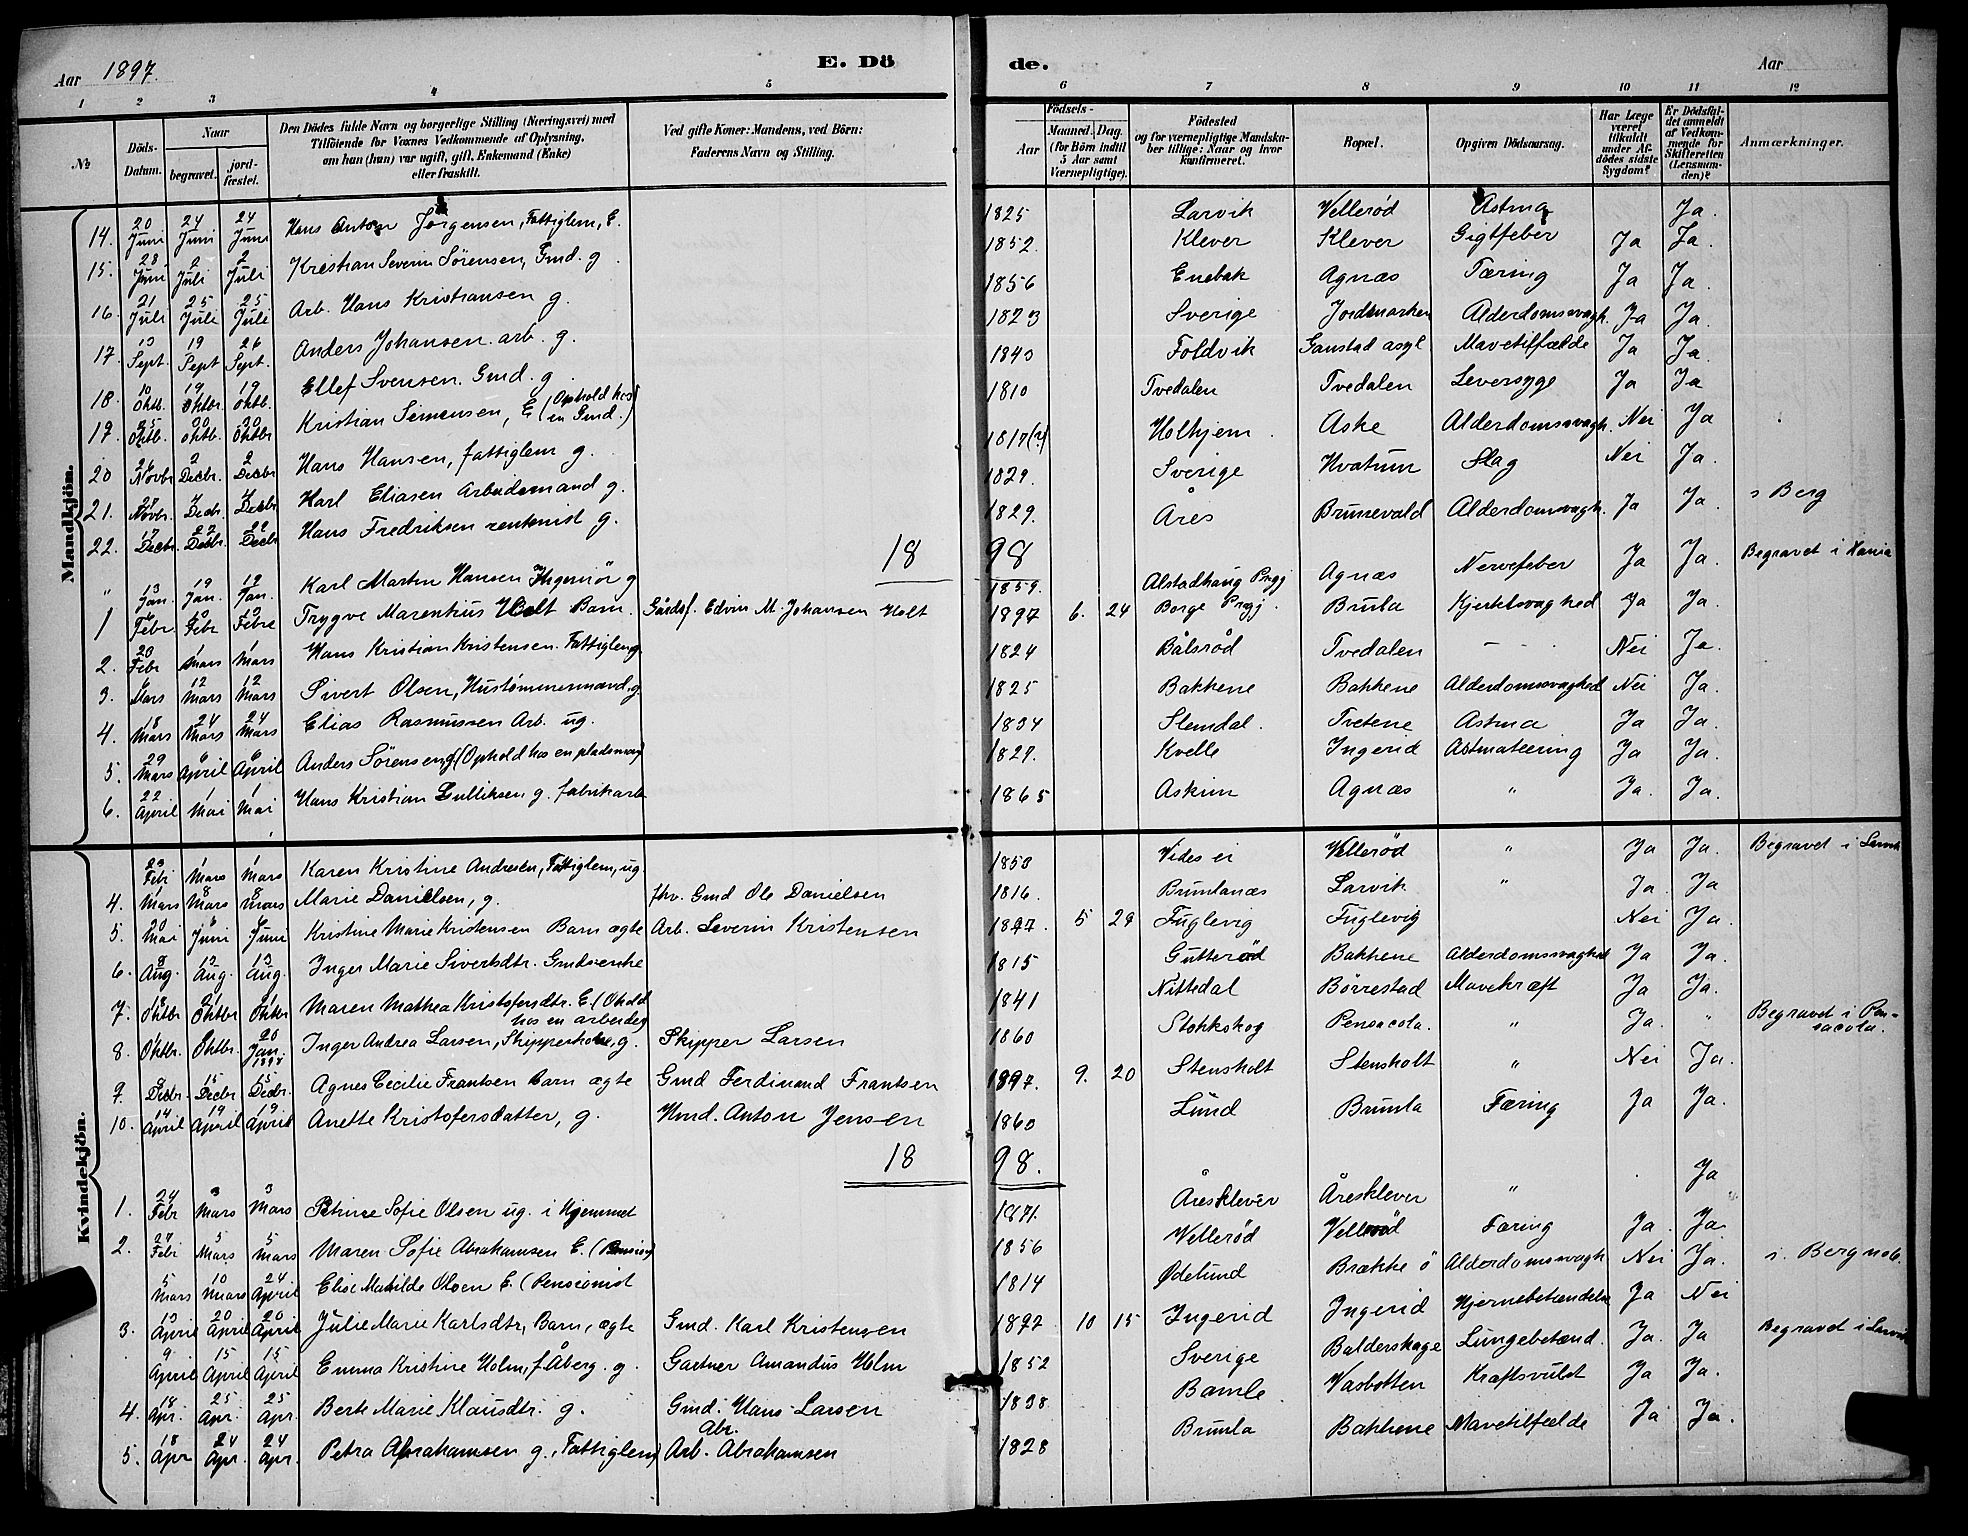 Aar 1897. E. Dö de. Aar
1 2 3 4 5 6 7 8 9 10 11 12
№ Döds-Datum. Naar begravet. jord-fæstet. Den Dödes fulde Navn og borgerlige Stilling (Næringsvei) med Tilföiende for Voxnes Vedkommende af Oplysning, om han (hun) var ugift, gift, Enkemand (Enke) eller fraskilt. Ved gifte Koner: Mandens, ved Börn: Faderens Navn og Stilling. Födsels- Aar Maaned. Dag. (for Börn indtil 5 Aar samt Værnepligtige). Födested og for værnepligtige Mandskaber tillige: Naar og hvor Konfirmeret. Bopæl. Opgiven Dödsaarsag. Har Læge været tilkaldt under Afdödes sidste Sygdom? Er Dödsfaldet anmeldt af Vedkommende for Skifteretten (Lensmanden)? Anmærkninger.
Mandkjön.
14. 20 Juni 24 Juni 24 Juni Hans Anton Jørgensen, Fattiglem, E. 1825 Larvik Vellerød Astma Ja.
15. 28 Juni 2 Juli 2 Juli Kristian Severin Sørensen, Gmd. g 1852. Klever Klever Gigtfeber Ja Ja.
16. 21 Juli 25 Juli 25 Juli Arb. Hans Kristiansen g. 1856 Enebak Agnæs Tæring Ja Ja.
17. 13 Sept. 19 Sept 26 Sept. Anders Johansen arb. g. 1823 Sverige Jordemarken Alderdomssvagh. Ja Ja.
18. 10 Oktb. 19 Oktbr 19 Oktb. Ellef Svensen. Gmd. g 1843 Foldvik Ganstad asyl Mavetilfælde Ja Ja.
19. Oktb. Oktb. Oktbr Kristian Simensen, E (Ophold hos en Gmd.) 1810 Tvedalen Tvedalen Leversyge Ja Ja
20 Novbr 2 Decbr. 2 Decbr Hans Hansen, fattiglem g. 1817(?) Holhjem Aske Alderdomssvagh. Nei Ja
21. Novbr. Decbr. Decbr Karl Eliasen Arbeidsmand g. 1829. Sverige Hvatum Slag Nei Ja.
22. 17 Decbr. 22 Decbr. 22 Decbr Hans Fredriksen rentenist g. 1829. Åres Brunevald Alderdomsvagh. Ja Ja. i Berg
18 98
" 13 Jan. 19 Jan. 19 Jan. Karl Martin Hansen Ingeniør g 1859. Alstadhaug Prgj Agnæs Nervefeber Ja Ja. Begravet i Xania
1 Febr. Febr Febr Trygve Marentius Holt Barn. Gårdsf. Edvin M. Johansen Holt 1897 6. 24 Borge Prgj. Brunla Hjertesvaghed Ja Ja.
2. 20 Febr 1 Mars 1 Mars Hans Kristian Kristensen. Fattiglem g. 1824 Bålsrød Tvedalen - Nei Ja.
3. 6 Mars 12 Mars 12 Mars Sivert Olsen, Hustømmermand, g 1825 Bakkene Bakkene Alderdomssvaghed Nei Ja.
4. 18 Mars 24 Mars 24 Mars Elias Rasmussen Arb. ug. 1834 Slemdal. Tvetene Astma Ja Ja.
5. 29 Mars 6 April 6 April Anders Sørensen g (Ophold hos en pladsmand) 1827. Kvelle Ingerid Astmatæring Ja Ja.
6. 22 April 1 Mai 1 Mai Hans Kristian Gulliksen g. fabrikarb 1865 Askim Agnæs " Ja. Ja.
Kvindekjön.
23 Febr 1 Mars 1 Mars Karen Kristine Andresen, Fattiglem, ug. 1853 Vides ei Vellerød " Ja Ja. Begravet i Larvik
4. 1 Mars 8 Mars 8 Mars Marie Danielsen, g. fhv. Gmd Ole Danielsen 1816. Brunlanæs Larvik " Ja. Ja
5. 30 Mai 6 Juni 6 Juni Kristine Marie Kristensen Barn ægte Arb. Severin Kristensen 1897. 5 29 Fuglevig Fuglevig Nei Ja.
6. 8 Aug. 13 Aug. 13 Aug. Inger Marie Sivertsdtr. Gmdsenke 1815 Gutterød Bakkene Alderdomssvaghed Ja Ja.
7. Oktbr Oktbr Oktbr Maren Mathea Kristofersdtr. E. (Ohold hos en arbeider) 1841 Nittedal Børrestad Mavekræft Ja Ja.
8. Oktbr. Oktbr. 20 Jan. 1898 Inger Andrea Larsen, Skipperkone, g. Skipper Larsen 1860 Stokkskog Pensacola. " Ja. " Begravet i Pensacola.
9. 9 Decbr. 15 Decbr 15 Decbr. Agnes Cecilie Frantsen Barn ægte Gmd Ferdinand Frantsen 1897. 9. 20 Stensholt Stensholt " Nei Ja.
10. 14 April 19 April 19 April Anette Kristofersdatter, g. Hmd. Anton Jensen 1860 Lund Brunla Tæring Ja Ja.
18 98.
1. 24 Febr 3 Mars 3 Mars Petrine Sofie Olsen ug. i Hjemmet 1871. Åresklever Åresklever " Ja
2. 27 Febr 5 Mars 5 Mars Maren Sofie Abrahamsen E. (Pension) 1856 Vellerød Vellerød Tæring Ja. Ja.
5 Mars 10 Mars 24 April Elise Matilde Olsen E. (Pensionist 1814 Ødelund Brække ø Alderdomssvagh Nei Ja. i Berg
3. 13 April 20 April 20 April Julie Marie Karlsdtr, Barn, ægte Gmd. Karl Kristensen 1897 10 15 Ingerid Ingerid Hjernebetændelse Ja Nei
9 April 15 April 15 April Emma Kristine Holm, f. Åberg. g. Gartner Amandus Holm 1852 Sverige Balderskage Lungebetænd. Ja. Ja Begravet i Larvik
4. 18 Apr. 25 Apr. 25 Apr. Berte Marie Klausdtr. g. Gmd. Hans Larsen 1838 Bamle Vasbotten Kraftsvulst Ja Ja.
5. 18 Apr 24 Apr. 24 Apr. Petra Abrahamsen g. Fattiglem) Arb. Abr. Abrahamsen 1828 Brunla Bakkene Mavetilfælde Ja Ja.